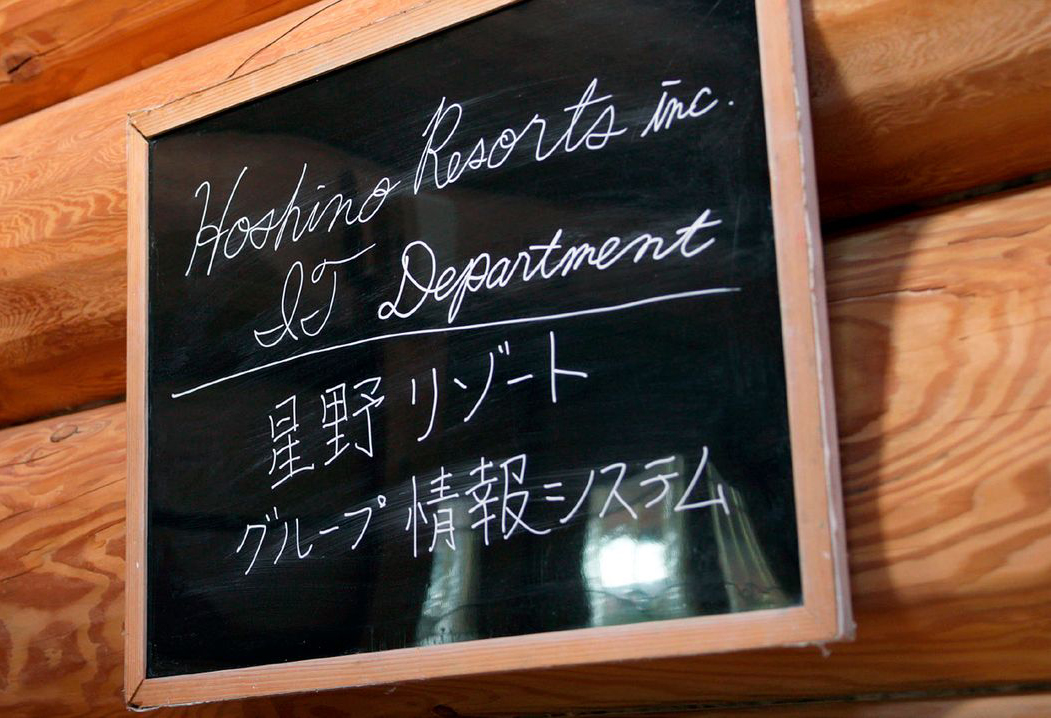 Hoshino Resorts inc.
IT Department
星野リゾート
グループ情報システム